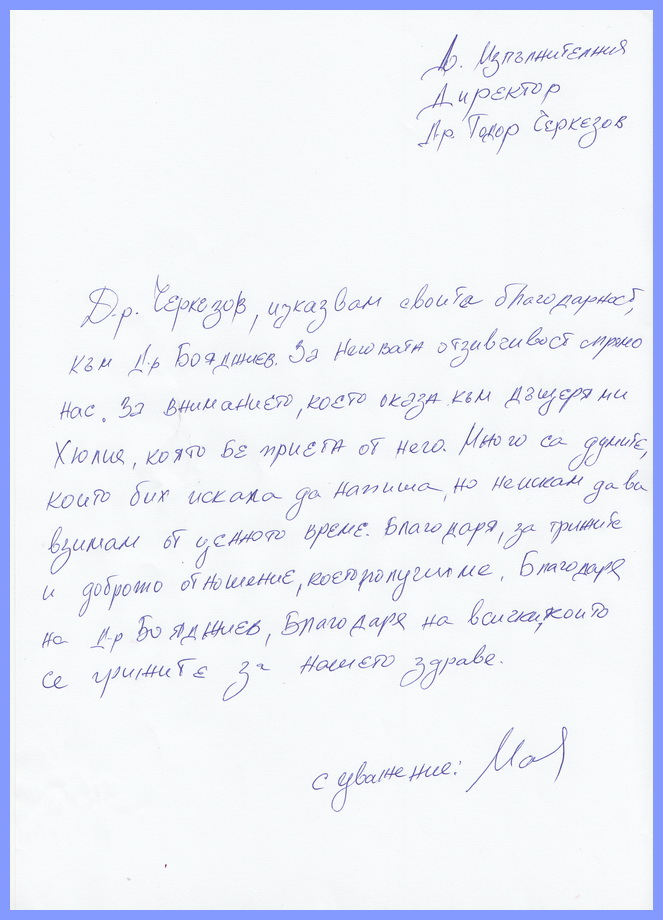 До. Изпълнителния
Директор
Др. Тодор Черкезов
Др. Черкезов, изказвам своита благодарност,
към Др Бояджиев. За неговата отзивчивост спрямо
нас. За вниманието, което оказа към дъщеря ми
Хюлия, която бе приета от него. Много са думите,
които бих искала да напиша, но неискам да ви
взимам от ценното време. Благодаря, за грижите
и доброто отношение, което получихме. Благодаря
на Др Бояджиев, Благодаря на всички, които
се грижите за нашето здраве.
с уважение: